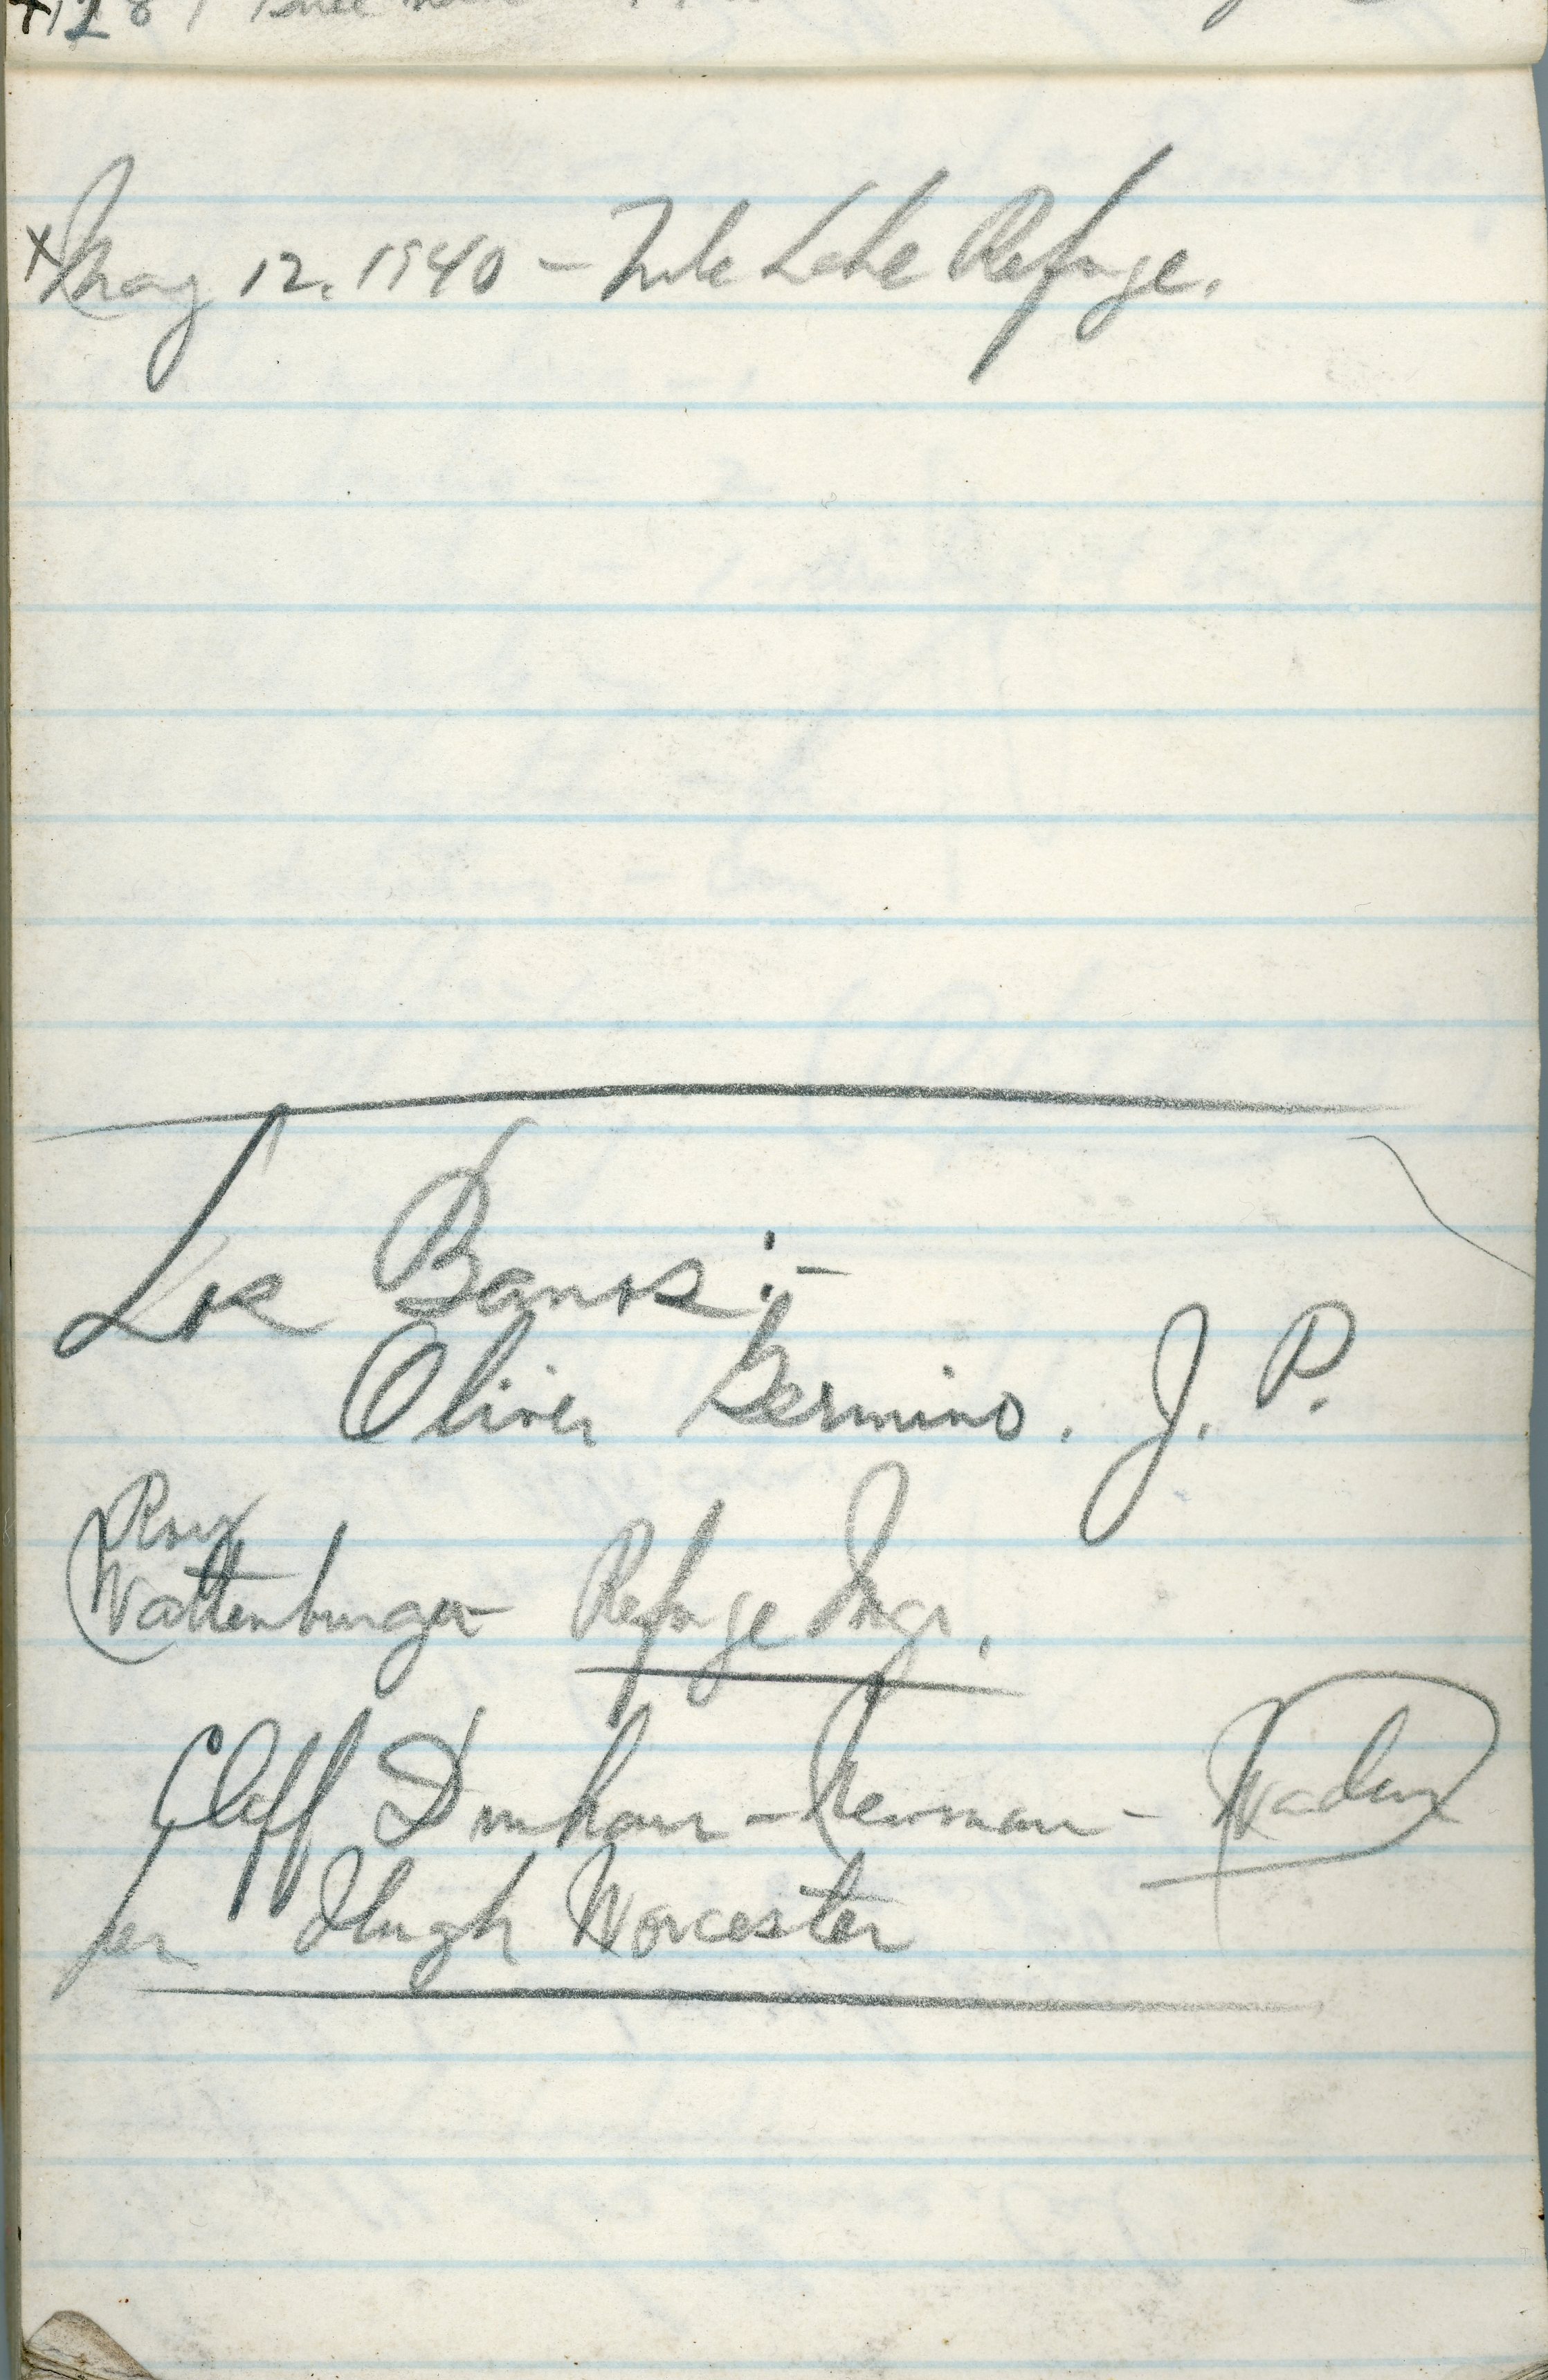 x May 12, 1940 - Tule Lake Refuge.
Los Banos :-
Oliver Germino. J. P.
(Roy
Wattenburger - Refuge Mgr.
Cliff Dunham - Newman -
per Hugh Worcester